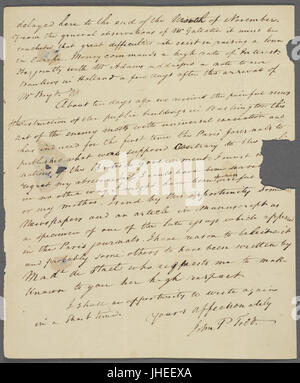 delayed here to the end of the Month of November.
From the general observations of Mr Gallatin it must be
concluded that great difficulties will exist in raising a loan
in Europe. Money commands a high rate of Interest.
Mr Adams addressed a note to our
Bankers in Holland a few days after the arrival of
Mr Boyd.
About ten days ago we received the painful news
of the destruction of the public buildings in Washington this
act of the enemy meets with universal execration and
has induced for the first time the Paris journals to
publish what was supposed contrary to the
of the government. I must
regret my absence
in no other
or my mother. I send by this opportunity some
Newspapers and an article in manuscript as
a specimen of one of the late essays which appeared
in the Paris journals. I have reason to believe it
and probably some others to have been written by
Made de Stael who requests me to make
known to you her high respect.
I shall have an opportunity to write again
in a short time.
yours affectionately
John P. Todd.
alamy
Image ID: JHEEXA
www.alamy.com